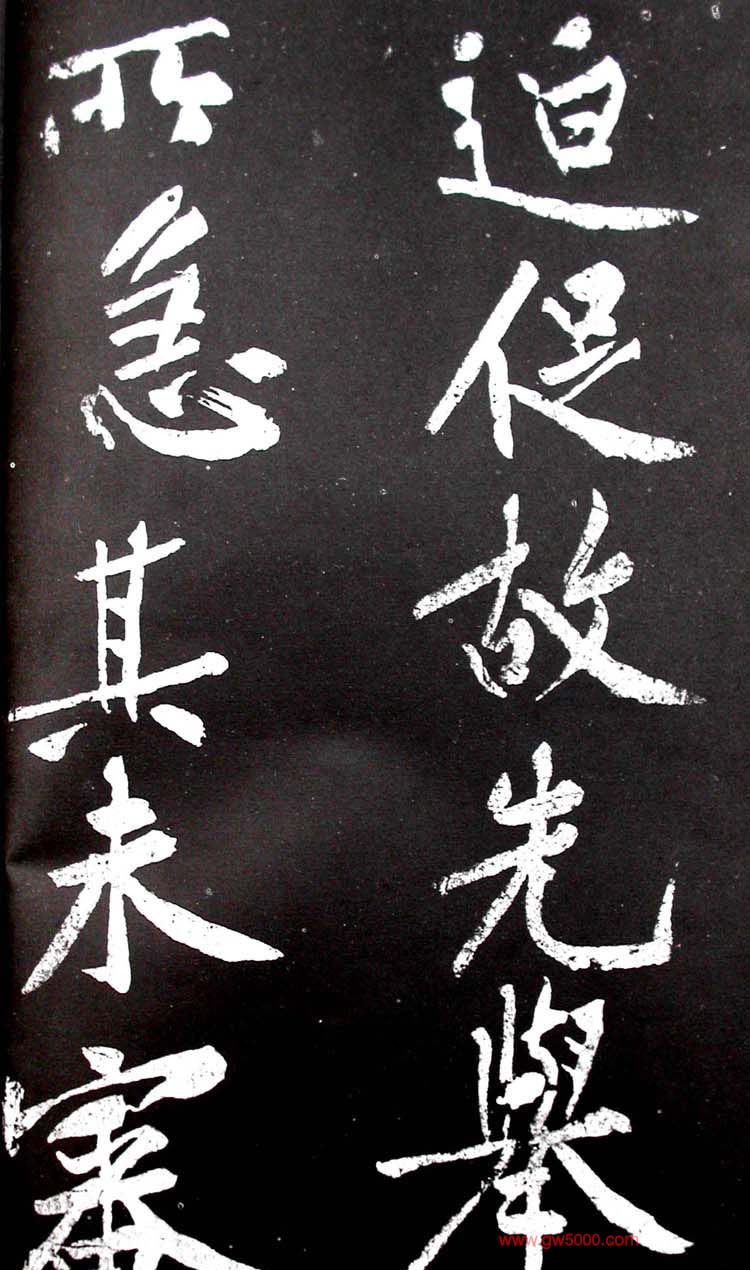 迫促故先舉
所急其未審
www.gw5000.com